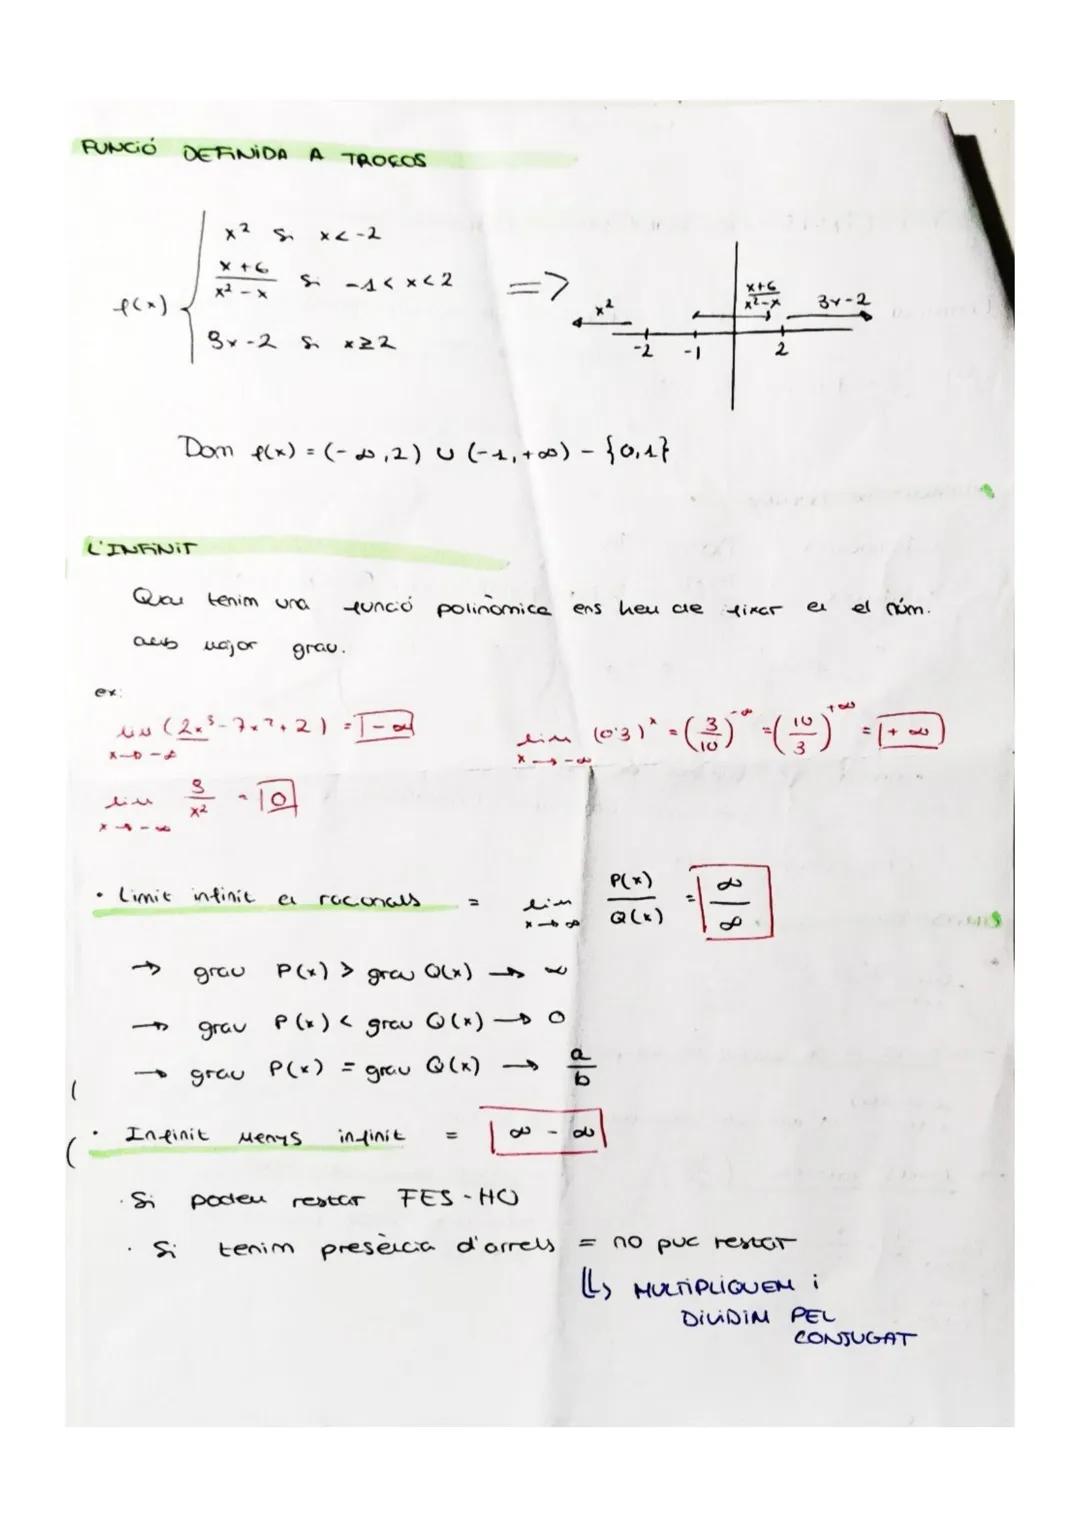 FUNCIÓ DEFINIDA A TROÇOS
f(x) { x² si x<-2
x+6 / x²-x si -1<x<2
3x-2 si x≥2
=>
x² x+6 / x²-x 3x-2
-2 -1 2
Dom f(x) = (-∞,2) ∪ (-1,+∞) - {0,1}
L'INFINIT
Quan tenim una funció polinòmica ens hem de fixar en el núm.
amb major grau.
ex:
lim x→-∞ (2x³-7x²+2) = -∞
lim x→-∞ (0'3)ˣ = (3/10)^-∞ = (10/3)^+∞ = +∞
lim x→-∞ 3/x² = 0
· Limit infinit en racionals = lim x→∞ P(x)/Q(x) = ∞/∞
→ grau P(x) > grau Q(x) → ∞
→ grau P(x) < grau Q(x) → 0
→ grau P(x) = grau Q(x) → a/b
· Infinit menys infinit = ∞ - ∞
· Si podem restar FES-HO
· Si tenim presència d'arrels = no puc restar
↳ MULTIPLIQUEM i
DIVIDIM PEL
CONJUGAT